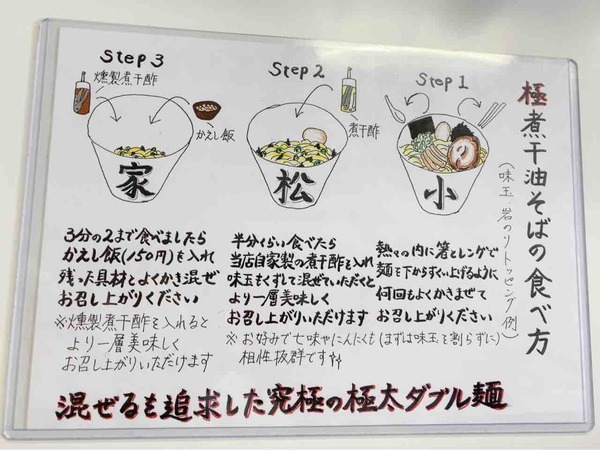 極煮干油そばの食べ方
(味玉・岩のりトッピング例)
Step 1
小
熱々の内に箸とレンゲで
麺を下からすくい上げるように
何回もよくかきまぜて
お召し上がりください
(まずは味玉を割らずに)
Step 2
煮干酢
松
半分くらい食べたら
当店自家製の煮干酢を入れ
味玉もくずして混ぜていただくと
より一層美味しく
お召し上がりいただけます
※お好みで七味やにんにくも
相性抜群です
Step 3
燻製煮干酢
かえし飯
家
3分の2まで食べましたら
かえし飯(150円)を入れ
残った具材とよくかき混ぜ
お召し上がりください
※燻製煮干酢を入れると
より一層美味しく
お召し上がりいただけます
混ぜるを追求した究極の極太ダブル麺